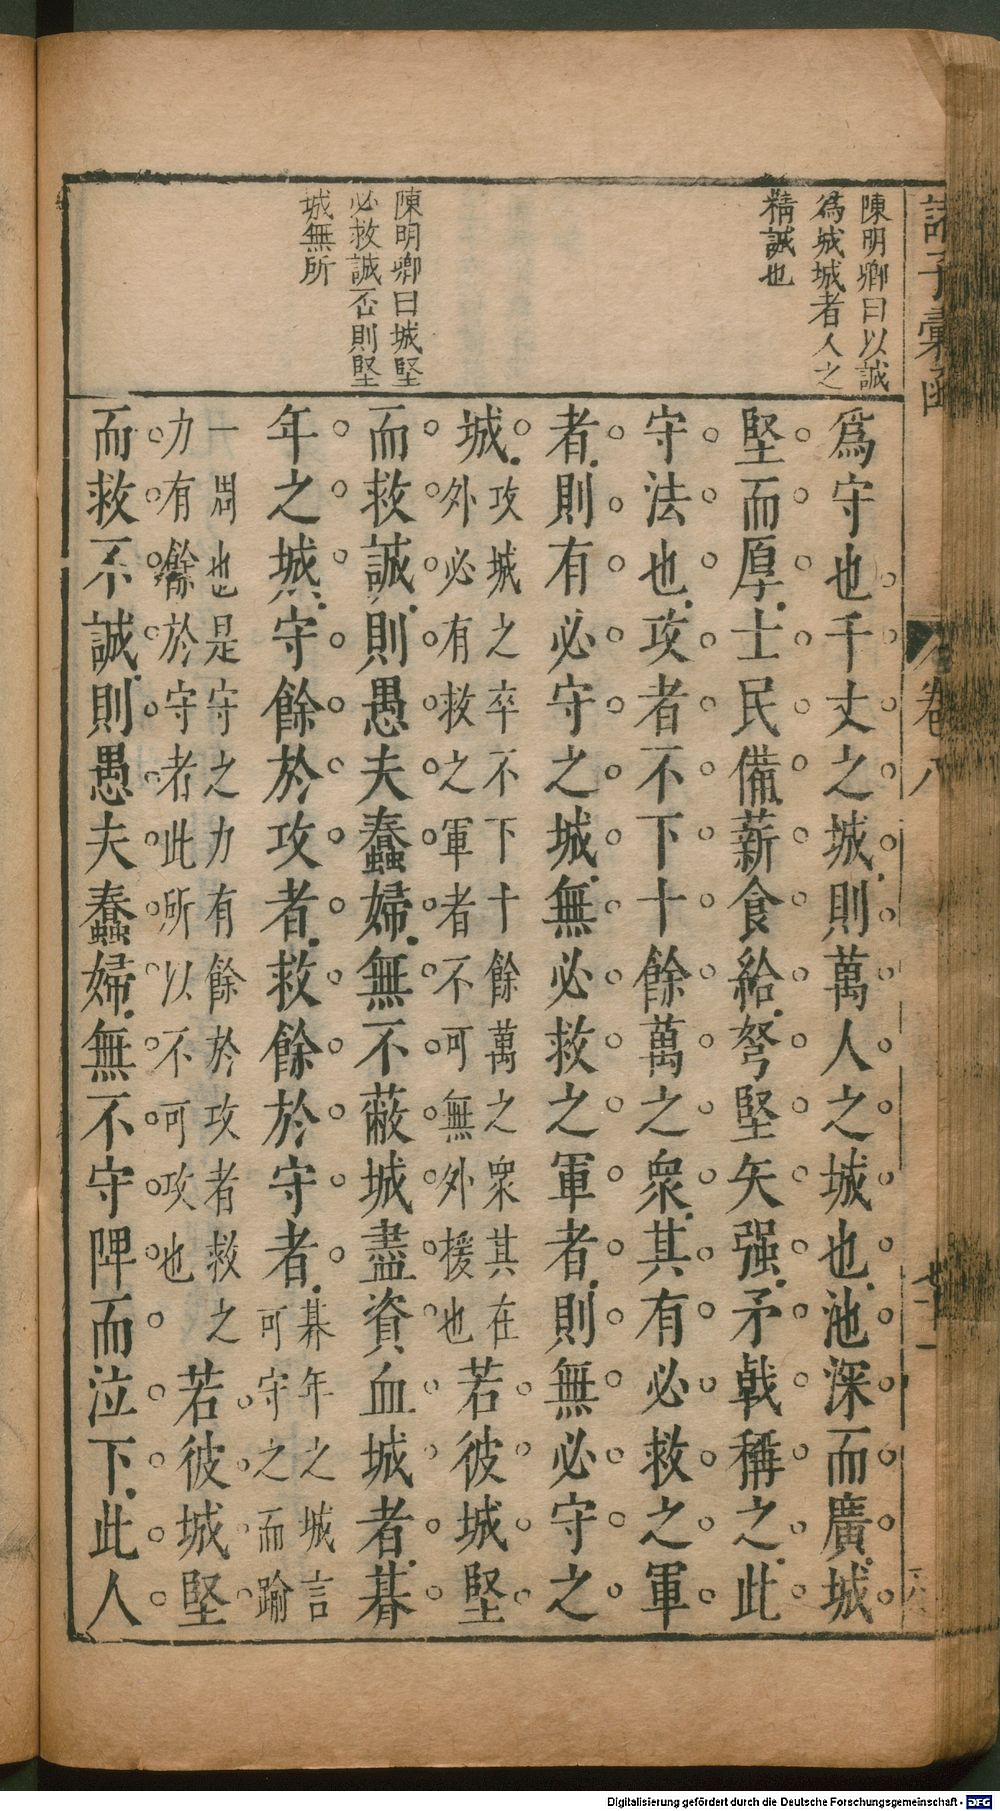 陳明卿曰以誠
爲城城者人之
精誠也
陳明卿曰城堅
必救誠否則堅
城無所
爲守也千丈之城則萬人之城也池深而廣城
堅而厚士民備薪食給弩堅矢强矛戟稱之此
守法也攻者不下十餘萬之衆其有必救之軍
者則有必守之城無必救之軍者則無必守之
城攻城之卒不下十餘萬之衆其在
外必有救之軍者不可無外援也若彼城堅
而救誠則愚夫蠢婦無不蔽城盡資血城者朞
年之城守餘於攻者救餘於守者朞年之城言
可守之而踰
一周也是守之力有餘於攻者救之
力有餘於守者此所以不可攻也若彼城堅
而救不誠則愚夫蠢婦無不守陴而泣下此人
諸子彙函
卷八
Digitalisierung gefördert durch die Deutsche Forschungsgemeinschaft - DFG